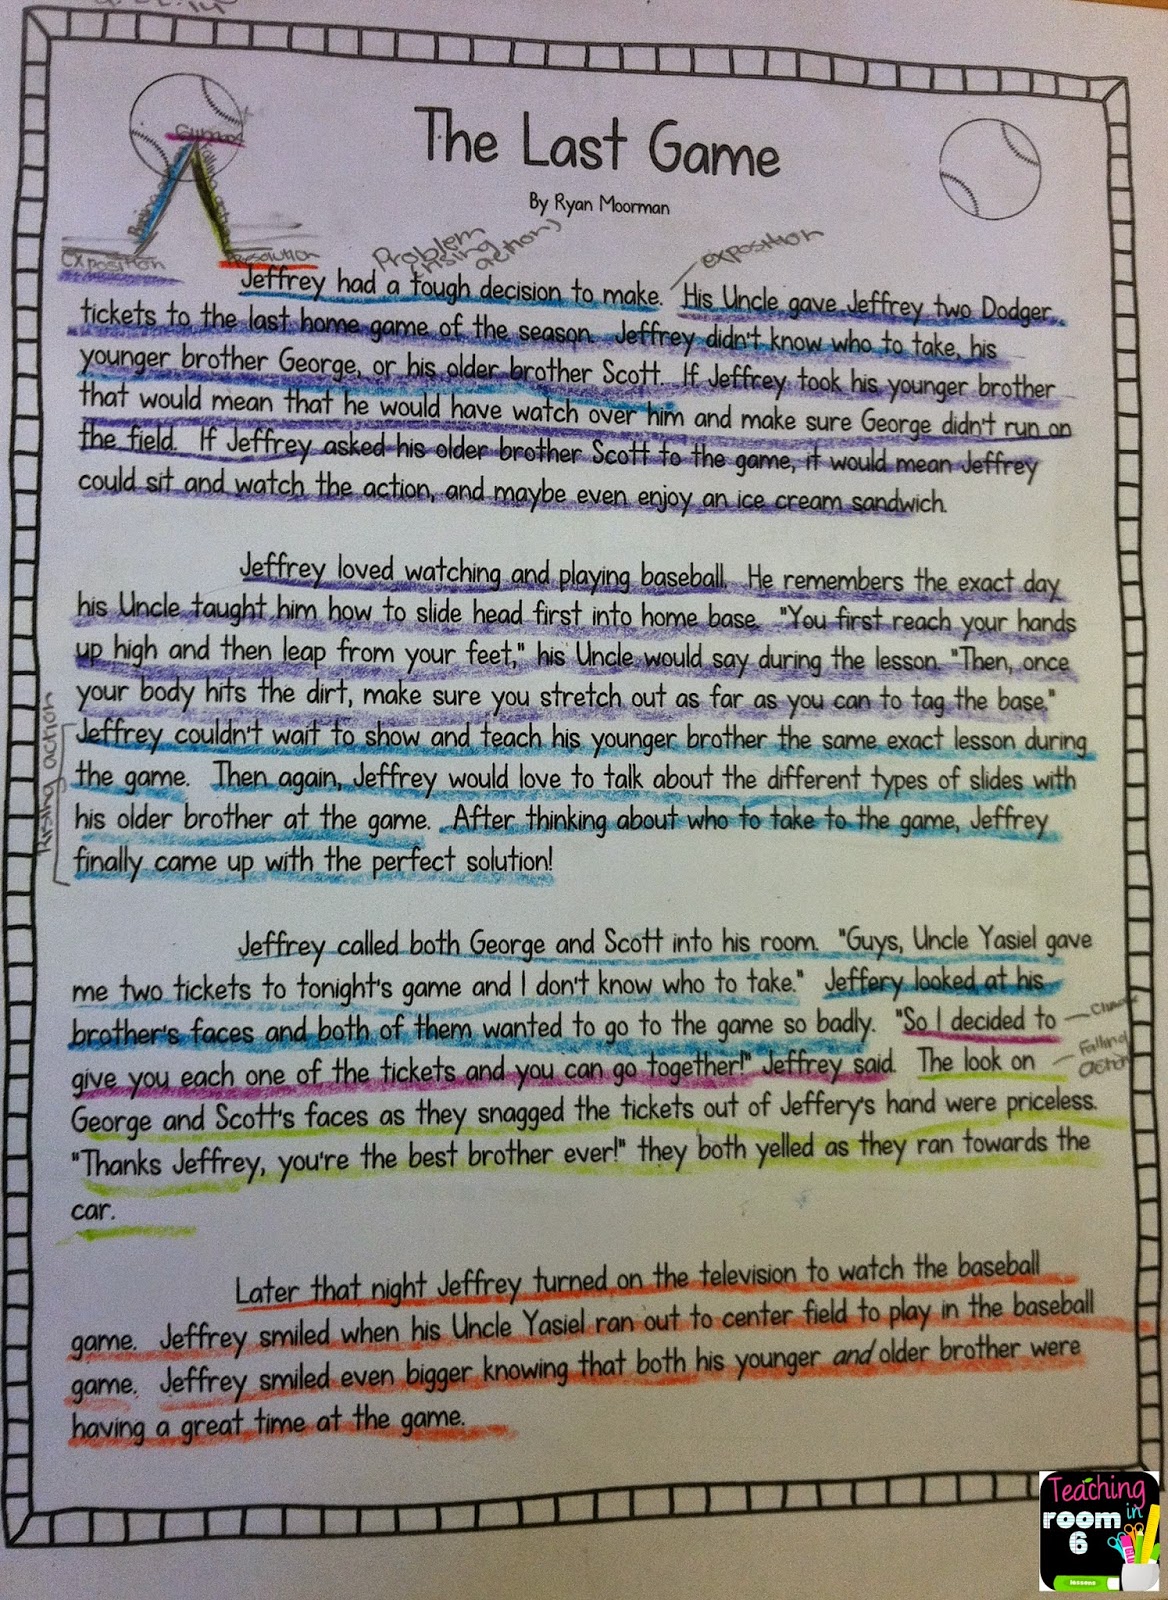 The Last Game
By Ryan Moorman
Climax
Rising
Falling action
exposition
Resolution
Problem
(rising
action)
exposition
Jeffrey had a tough decision to make. His Uncle gave Jeffrey two Dodger
tickets to the last home game of the season. Jeffrey didn't know who to take, his
younger brother George, or his older brother Scott. If Jeffrey took his younger brother
that would mean that he would have watch over him and make sure George didn't run on
the field. If Jeffrey asked his older brother Scott to the game, it would mean Jeffrey
could sit and watch the action, and maybe even enjoy an ice cream sandwich.
Jeffrey loved watching and playing baseball. He remembers the exact day
his Uncle taught him how to slide head first into home base. "You first reach your hands
up high and then leap from your feet," his Uncle would say during the lesson. "Then, once
your body hits the dirt, make sure you stretch out as far as you can to tag the base."
Rising action
Jeffrey couldn't wait to show and teach his younger brother the same exact lesson during
the game. Then again, Jeffrey would love to talk about the different types of slides with
his older brother at the game. After thinking about who to take to the game, Jeffrey
finally came up with the perfect solution!
Jeffrey called both George and Scott into his room. "Guys, Uncle Yasiel gave
me two tickets to tonight's game and I don't know who to take." Jeffery looked at his
brother's faces and both of them wanted to go to the game so badly. "So I decided to
Climax
give you each one of the tickets and you can go together!" Jeffrey said. The look on
Falling
action
George and Scott's faces as they snagged the tickets out of Jeffery's hand were priceless.
"Thanks Jeffrey, you're the best brother ever!" they both yelled as they ran towards the
car.
Later that night Jeffrey turned on the television to watch the baseball
game. Jeffrey smiled when his Uncle Yasiel ran out to center field to play in the baseball
game. Jeffrey smiled even bigger knowing that both his younger and older brother were
having a great time at the game.
Teaching
in
room
6
lessons